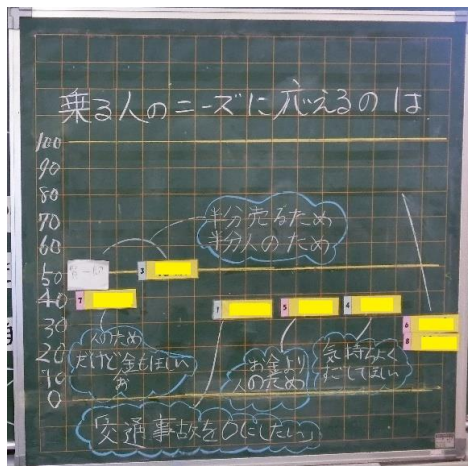 乗る人のニーズに応えるのは
100
90
80
70
60
50
40
30
20
10
0
半分売るため
半分人のため
3
7
1
5
4
6
8
人のため
だけど金もほしい
お金より
人のため
気持ちよく
すごしてほしい
交通事故を0にしたい